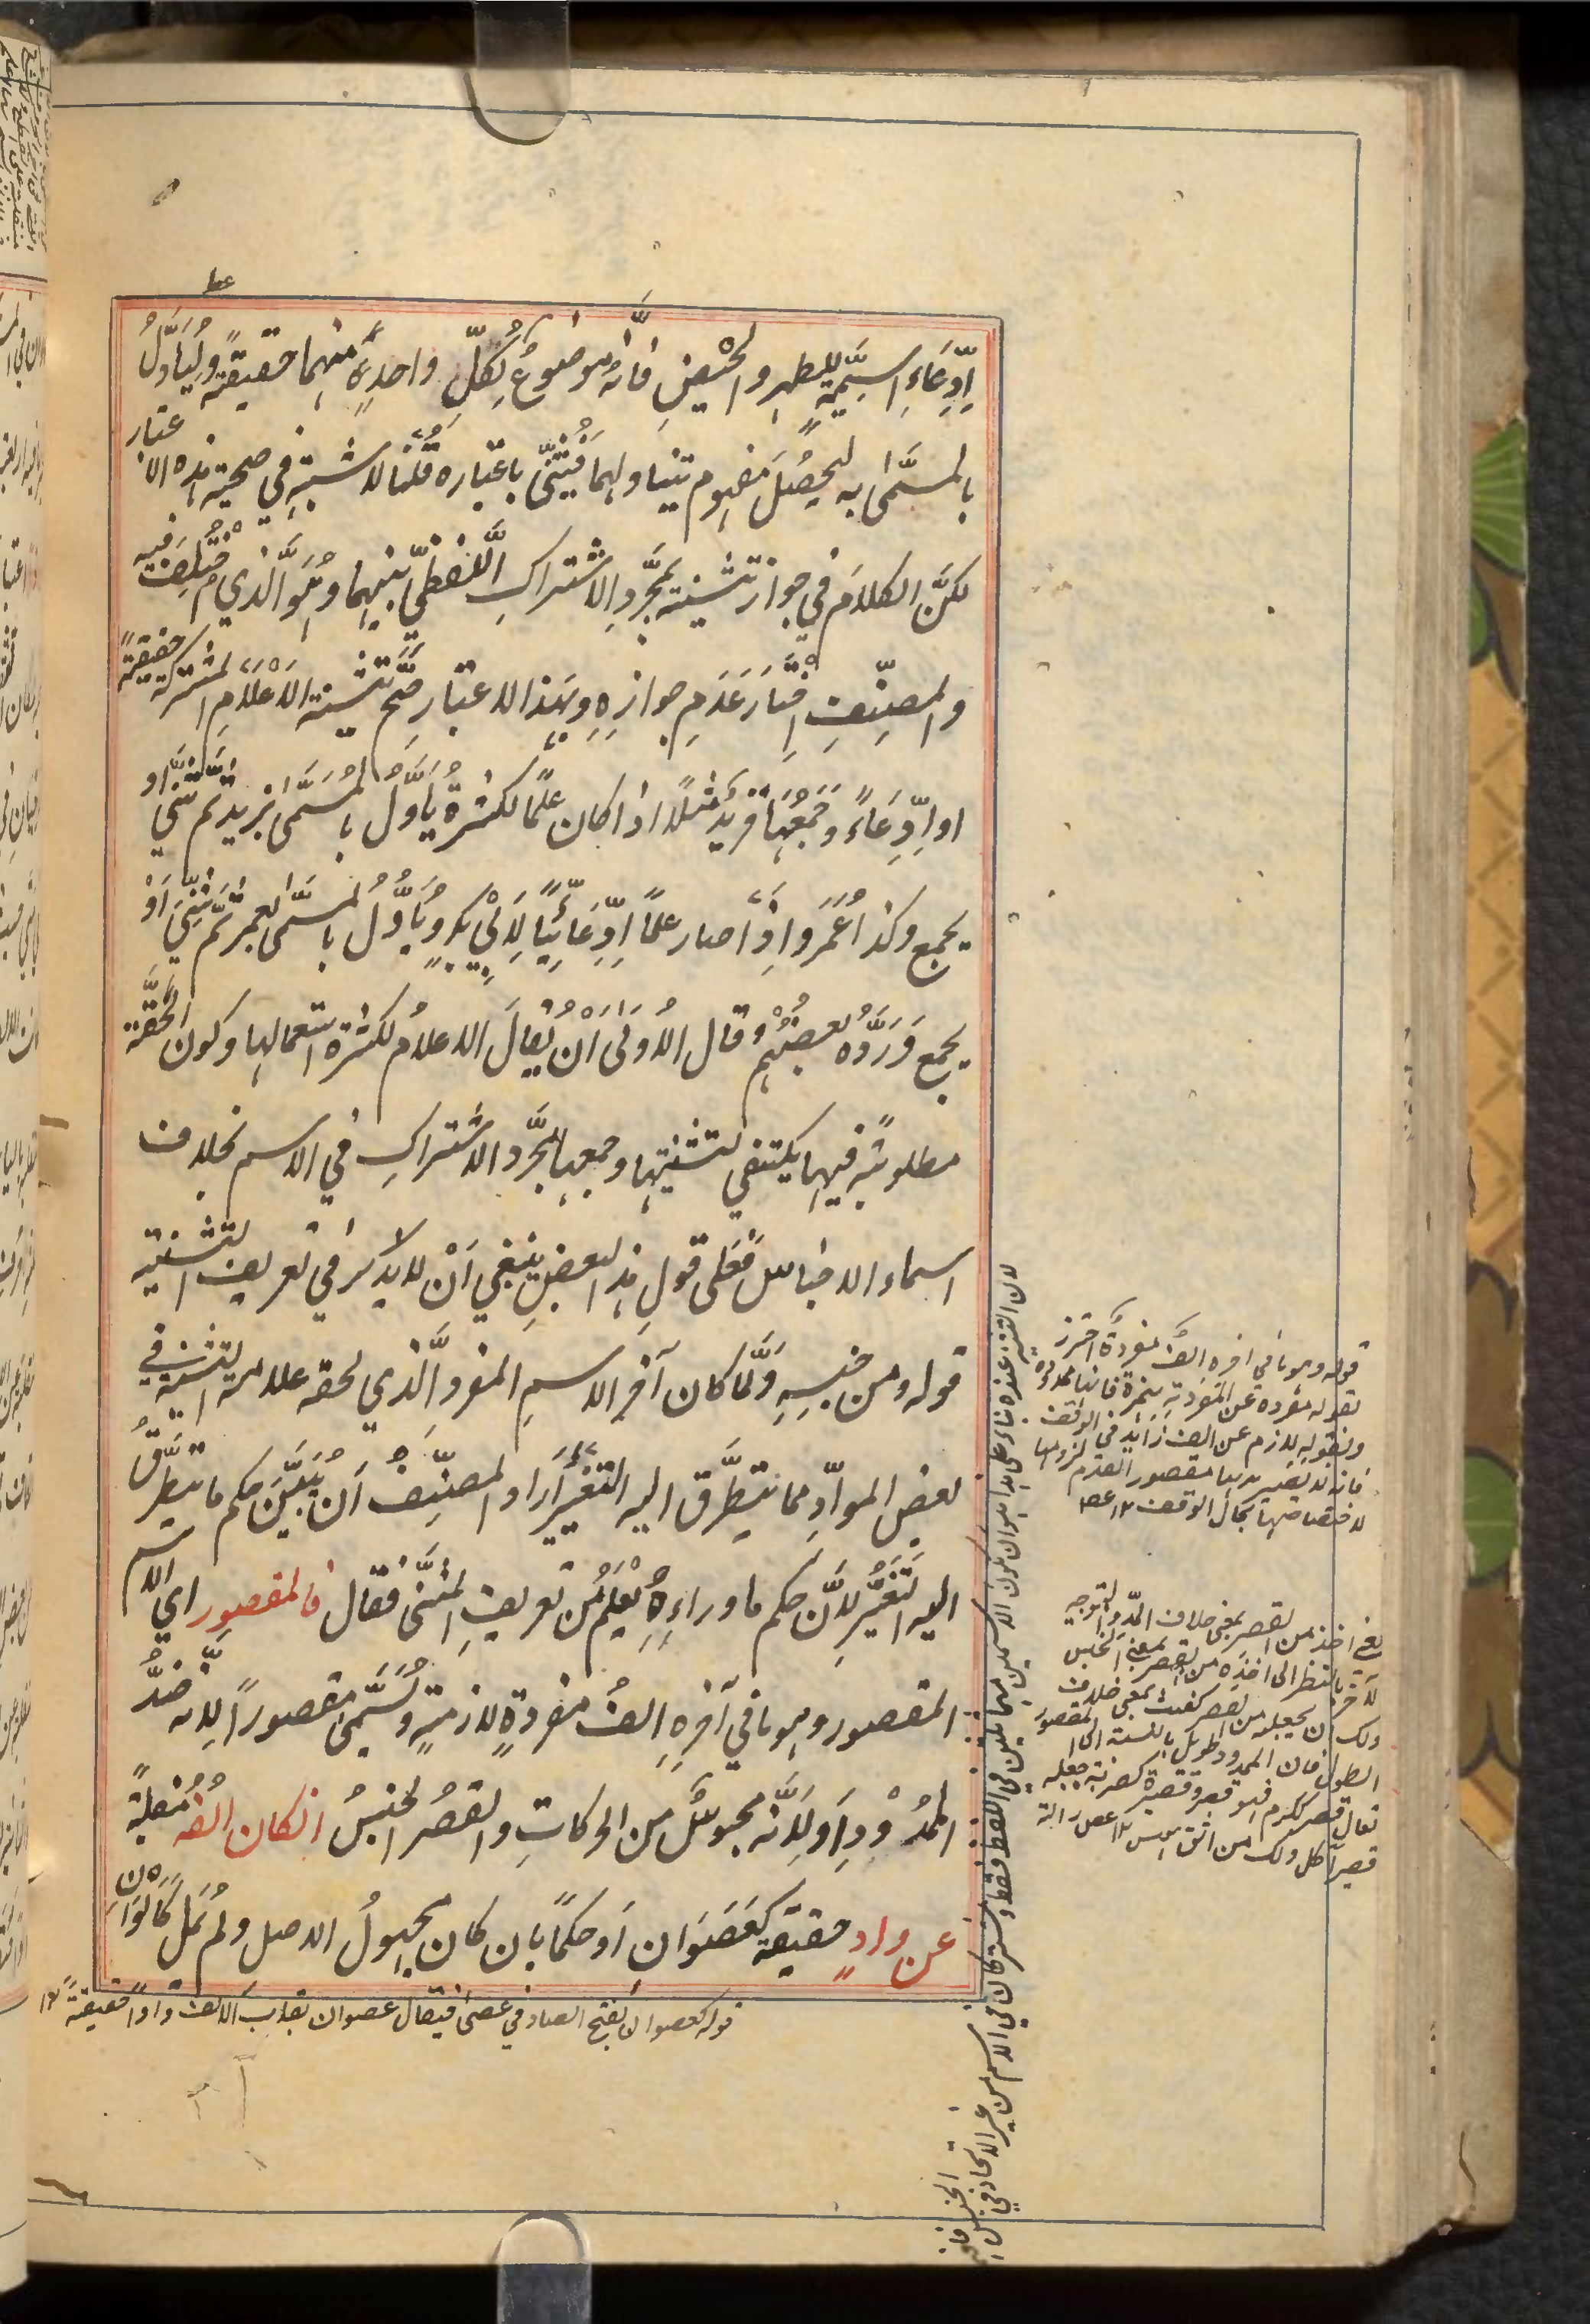 اِدِّعَاءِ اسميّةٍ للطهرِ والحَيْضِ فانّه موضوعٌ لِكلِّ واحدةٍ منهما حقيقةً ولْيُأوَّلُ
بالمسمّىٰ به ليحصُلَ مفهوم يتناولهما فَيُثنّٰى باعتباره قُلْنا لا شبهةِ في صحة هذه الاعتبار
لكنَّ الكلامَ في جواز تثنيته بمجرّدِ الاشتراكِ اللَّفظيِّ بينهما وهُوَ الَّذي اخْتُلِفَ فيه
والمصنِّفِ اِخْتَارَ عَدَمِ جوازِهِ وبهٰذا الاعتبارِ صَحَّ تثنية الاَعْلَامِ المشتركة حقيقةً
او اِدِّعَاءً وجَمْعُهَا فزيدٌ مَثَلًا اذا كان علمًا لكثرةٍ يُأَوَّلُ بالمُسَمَّىٰ بزيد ثُم يُثَنّٰى او
يجمع وكذا عُمَرُ واِذَا صار علمًا اِدِّعَائيًّا لِاَبي بكرٍ ويُأوَّلُ بالمسمّىٰ بعمر ثمّ يُثنّٰى اَوْ
يجمع وَرَدَّهُ بَعضُهُمْ وقال الأولىٰ اَنْ يُقالَ الاعلامُ لكثرة استعمالها وكون الخفّة
مطلوبةً فيها يكتفي لتثنيتها وجمعها بمجرّد الاشتراكِ في الاسم بخلاف
اسماء الاجناس فعلى قولِ هذا البعضِ ينبغي اَنْ لا يذكر في تعريف التثنية
قوله ومن جنسِهِ ولَمّا كان آخر الاسمِ المفردِ الَّذي لحقه علامة التثنية في
بعض الموادِّ مما يتطرَّق اليه التغيُّرُ اَراد المصنِّفُ اَن يُبَيِّنَ حكم ما يتطرَّقُ
اليه التَّغَيُّرُ لِاَنَّ حكم ما وراءِهِ يُعْلَمُ من تعريفِ المثنّىٰ فقال فالمقصور اي الاسم
المقصور وهو ما في آخرِهِ الفٌ مفردةٍ لازمةٍ وتُسَمّىٰ مقصورًا لِانّه ضِدُّ
الممْدُوْدِ اَو لِاَنَّه محبوسٌ من الحركاتِ والقصرُ الحَبْسُ انكان الفُه منْقلبةً
عن واوٍ حقيقةً كَعَصَوَانِ اَو حكمًا بان كان مجهولُ الاصل ولم يُمَل كَاَلَوَانِ
قوله كعصوان بفتح الصاد في عصىٰ فيقال عصوان بقلب الالف واوا حقيقةً ١٢
قوله وهو ما في آخره الف مفردةٌ احترز
بقوله مفردة عن المفردة بهمزة فانها ممدودة
وبقوله لازم عن الف زايد في الوقف
فانه لا يصير بها مقصور العدم لزومها
لاختصاصها بحال الوقف ١٢ عص
يعني اخذ من القصر بمعنى خلاف المدّ والتوجيه
الآخر بالنظر الى اخذه من القصر بمعنى الحبس
ولك ان يجعله من القصر كعنب بمعنى خلاف
الطول فان الممدود طويل بالنسبة الى المقصور
يقال قصر ككرم فهو قصير وقصره كضربه جعله
قصيرا كل ذلك من
لان التثنية عنده بناء على هذا اما ان يكون الاسمين متماثلين في اللفظ فقط او مشتركان في الاسم من غير الاتحاد في
الجنس